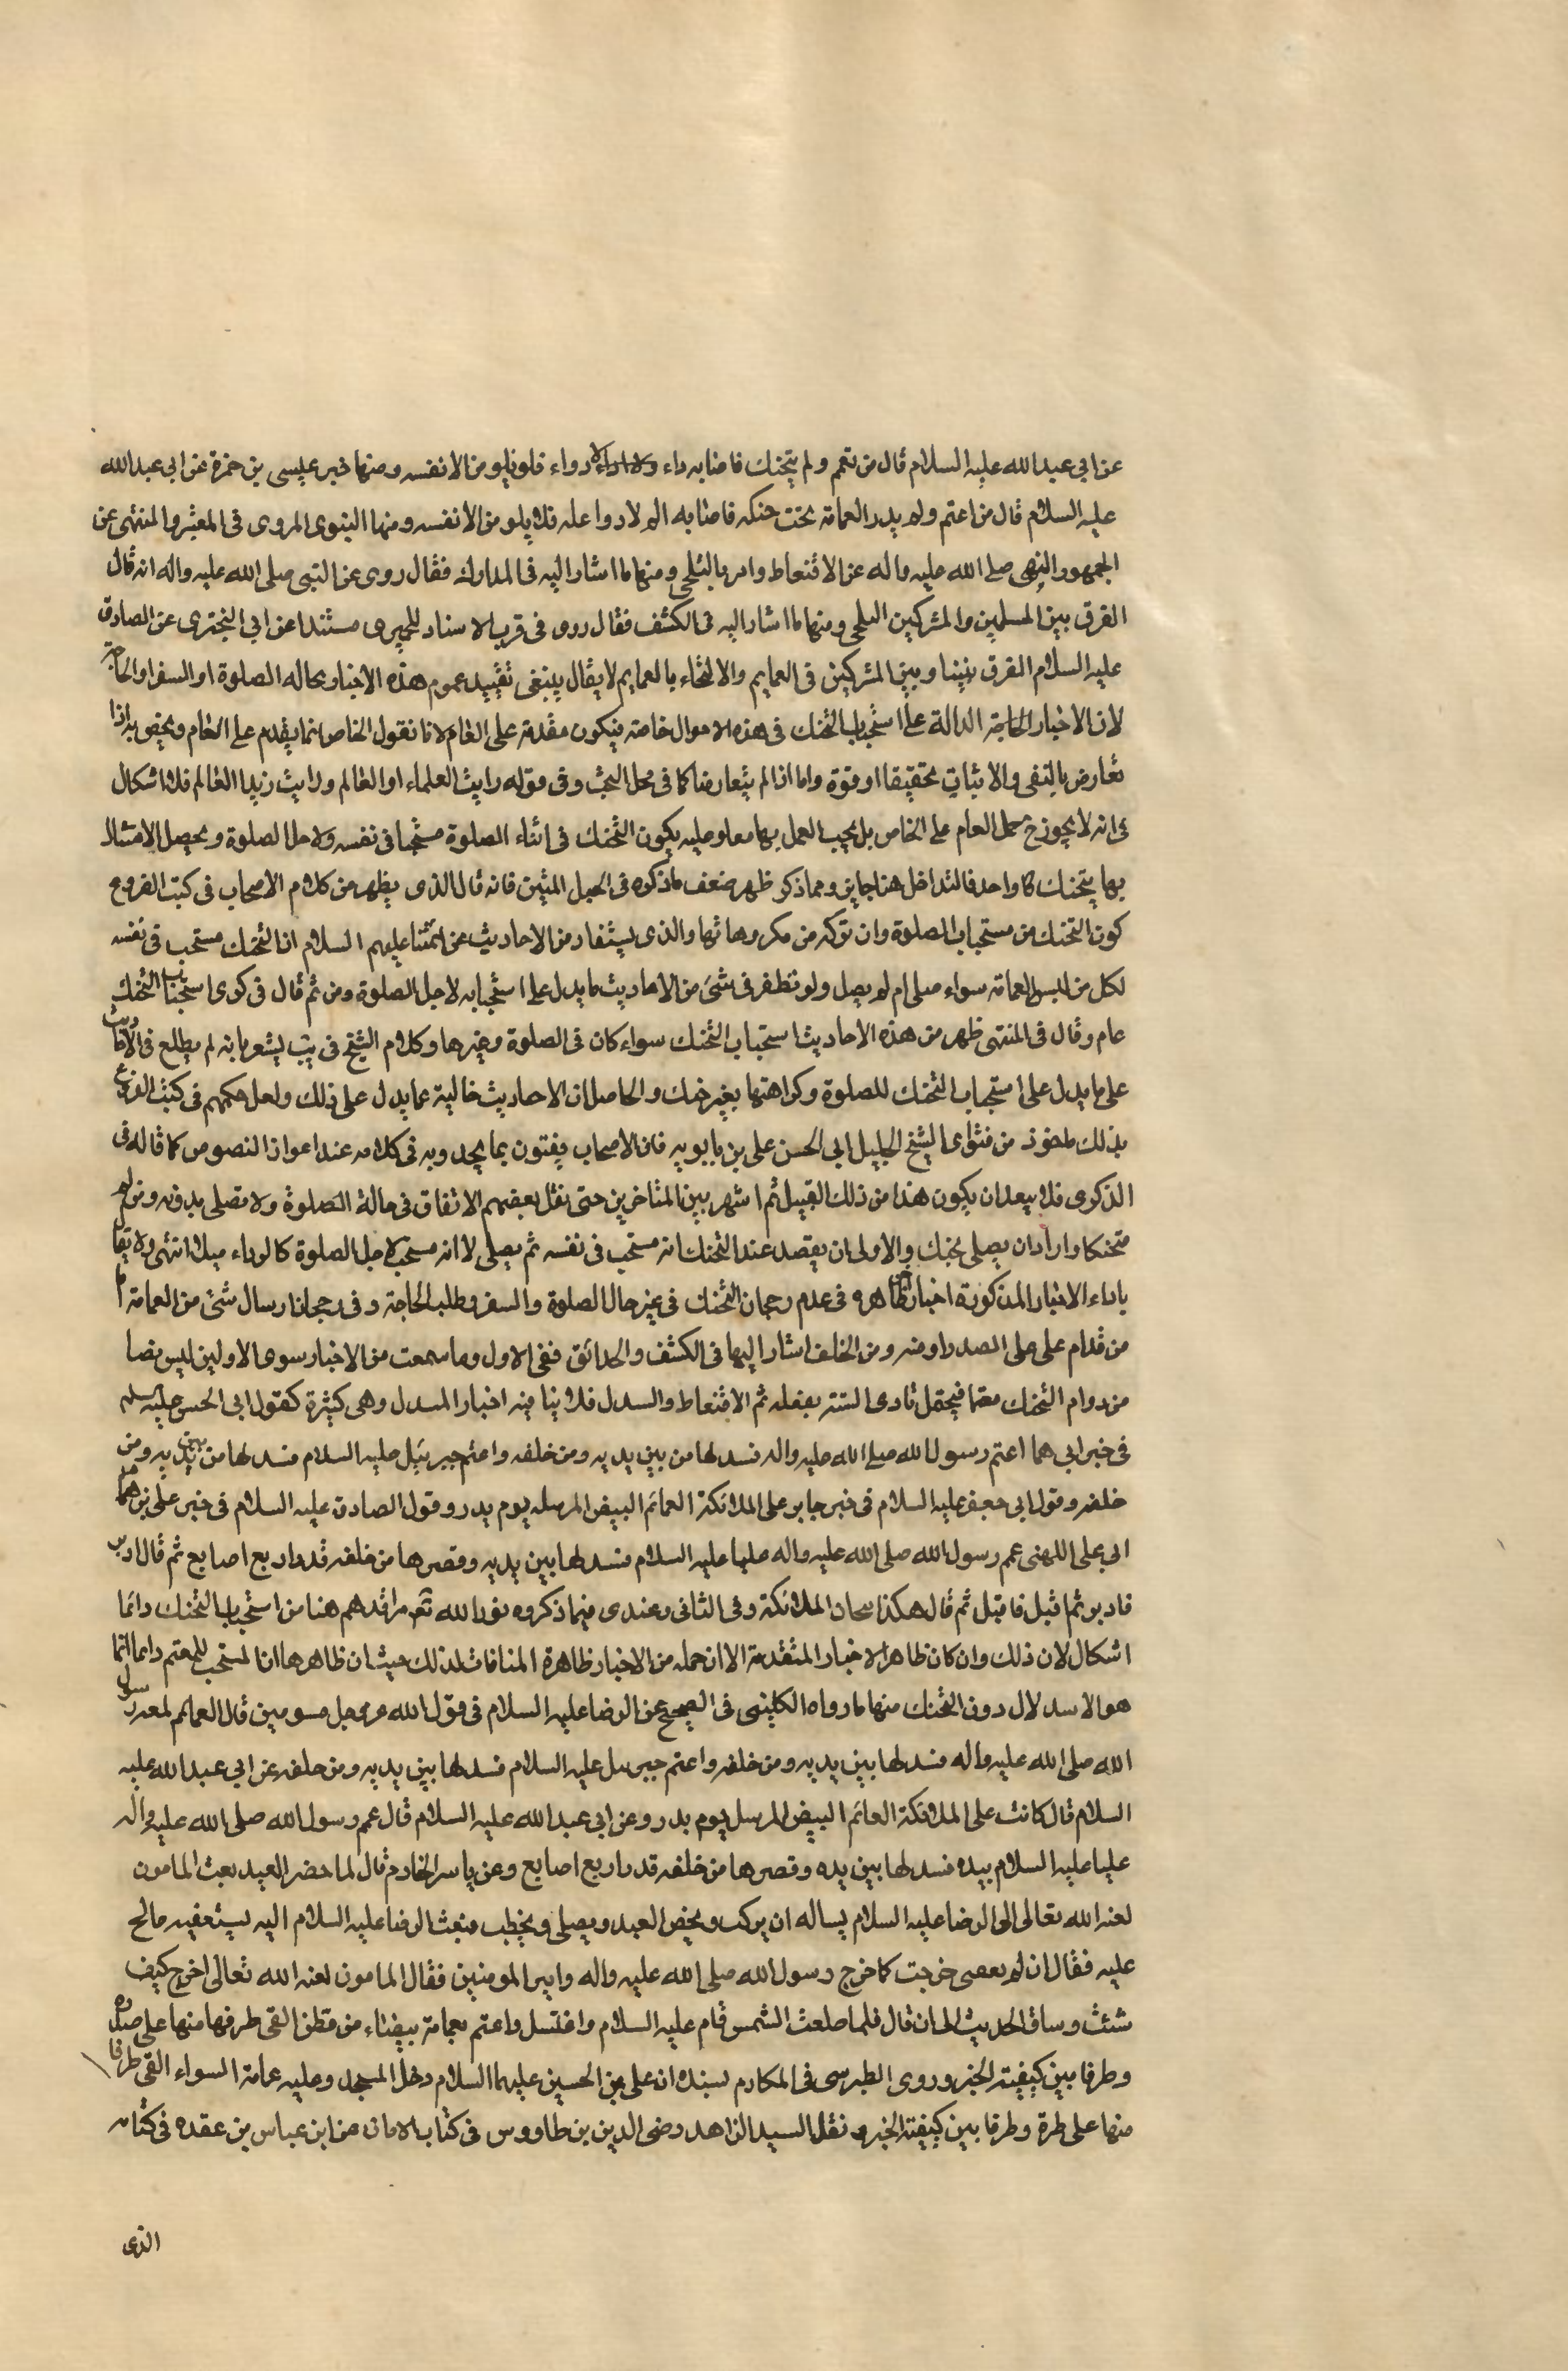 عن ابي عبد الله عليه السلام قال من تعمم ولم يتحنك فاصابه داء لا دواء فلا يلومن الا نفسه ومنها خبر عيسى بن حمزة عن ابي عبد الله
عليه السلام قال من اعتم ولم يدر العمامة تحت حنكه فاصابه الم لا دوا عله فلا يلومن الا نفسه ومنها النبوى المروى فى المعتبر والمنتهى عن
الجمهور النهى صلى الله عليه واله عن الاقتعاط وامر بالتلحى ومنها ما اشار اليه فى المدارك فقال روى عن النبى صلى الله عليه واله انه قال
الفرق بين المسلمين والمشركين التلحى ومنها ما اشار اليه فى الكشف فقال روى فى قرب الاسناد للحميرى مسندا عن ابي البخترى عن الصادق
عليه السلام الفرق بيننا وبين المشركين فى العمايم والالتحاء بالعمايم لا يقال ينبغى تقييد عموم هذه الاخبار بحاله الصلوة او السفر او الحاجة
لان الاخبار الخاصة الدالة على استحباب التحنك فى هذه الاموال خاصة فيكون مقدمة على العام لانا نقول الخاص انما يقدم على العام ويخص به اذا
تعارض بالنفى والاثبات تحقيقا او قوة واما اذا لم يتعارضا كما فى محل البحث وفى قوله رايت العلماء او العالم ورايت زيدا العالم فلا اشكال
فى انه لا يجوز ح حمل العام على الخاص بل يجب العمل بهما معا وعليه يكون التحنك فى اثناء الصلوة مستحبا فى نفسه ولاجل الصلوة ويحصل الامتثال
بهما بتحنك كا واحد فالتداخل هنا جايز ومما ذكر ظهر ضعف ما ذكره فى الحبل المتين فانه قال الذى يظهر من كلام الاصحاب فى كتب الفروع
كون التحنك من مستحباب الصلوة وان تركه من مكروهاتها والذى يستفاد من الاحاديث عن ائمتنا عليهم السلام ان التحنك مستحب فى نفسه
لكل من لبس العمامة سواء صلى ام لم يصل ولو تظفر فى شئ من الاحاديث ما يدل على استحبابه لاجل الصلوة ومن ثم قال فى كرى استحباب التحنك
عام وقال فى المنتهى ظهر من هذه الاحاديث استحباب التحنك سواء كان فى الصلوة وغيرها وكلام الشيخ فى يب يشعر بانه لم يطلع فى الاحاديث
على ما يدل على استحباب التحنك للصلوة وكراهتها بغير خنك والحاصل ان الاحاديث خالية عما يدل على ذلك ولعل حكمهم فى كتب الفروع
بذلك ماخوذ من فتواى الشيخ الجليل ابي الحسن على بن بابويه فان الاصحاب يفتون بما يجدونه فى كلامه عند اعواز النصوص كما قاله فى
الذكرى فلا يبعد ان يكون هذا من ذلك القبيل ثم اشتهر بين المتاخرين حتى نقل بعضهم الاتفاق فى حالة الصلوة ولا تصلى بدونه ومن لم
متحنكا واراد ان يصلى بحنك والاولى ان يقصد عند التحنك انه مستحب فى نفسه ثم يصلى لا انه مستحب لاجل الصلوة كالرداء مثلا انتهى ولا يقا
باداء الاخبار المذكورة اخبار اخر ظاهره فى عدم رجحان التحنك فى غير حال الصلوة والسفر وطلب الحاجة وفى رجحان ارسال شئ من العمامة
من قدام على على الصدر او منه ومن الخلف اشار اليها فى الكشف والحدائق ففى الاول وما سمعت من الاخبار سوى الاولين ليس نصا
من دوام التحنك معتما فيحتمل تادى السنة بفعله ثم الاقتعاط والسدل فلا ينا فيه اخبار السدل وهى كثيرة كقول ابي الحسن عليه السلم
فى خبر ابي هما اعتم رسول الله صلى الله عليه واله فسدلها من بين يديه ومن خلفه واعتم جبريئل عليه السلام فسدلها من بين يديه ومن
خلفه وقول ابي جعفر عليه السلام فى خبر جابر على الملائكة العمائم البيض المرسله يوم بدر وقول الصادق عليه السلام فى خبر على بن
ابي على اللهبى عمم رسول الله صلى الله عليه واله عليا عليه السلام فسدلها بين يديه وقصرها من خلفه قدر اربع اصابع ثم قال ادبر
فادبر ثم اقبل فاقبل ثم قال هكذا تيجان الملائكة وفى الثانى وعندى فيما ذكروه نور الله تعالى مراقدهم هنا من استحباب التحنك دائما
اشكال لان ذلك وان كان ظاهر الاخبار المتقدمة الا ان جمله من الاخبار ظاهرة المنافات لذلك حيث ان ظاهرها ان المستحب للمعتم دائما انما
هو الاسدلال دون التحنك منها ما رواه الكلينى فى الصحيح عن الرضا عليه السلام فى قول الله عز وجل مسومين قال العمائم لعمه رسول
الله صلى الله عليه واله فسدلها بين يديه ومن خلفه واعتم جبرسل عليه السلام فسدلها بين يديه ومن حلفه عن ابي عبد الله عليه
السلام قال كانت على الملائكة العمائم البيض المرسل يوم بدر وعن ابي عبد الله عليه السلام قال عمم رسول الله صلى الله عليه واله
عليا عليه السلام بيده فسدلها بين يده وقصرها من خلفه قدر اربع اصابع وعن ياسر الخادم قال لما حضر العيد بعث المامون
لعنه الله تعالى الى الرضا عليه السلام يساله ان يركب ويحضر العيد ويصلى ويخطب فبعث الرضا عليه السلام اليه يستعفيه فالح
عليه فقال ان لم تعفنى خرجت كما خرج رسول الله صلى الله عليه واله وامير المومنين فقال المامون لعنه الله تعالى اخرج كيف
شئت وساق الحديث الى ان قال فلما طلعت الشمس قام عليه السلام واغتسل واعتم بعمامة بيضاء من قطن القى طرفها منها على صدره
وطرفا بين كيفيته الخبر وروى الطبرسى فى المكارم بسنده ان على بن الحسين عليهما السلام دخل المسجد وعليه عمامة السواء القى طرفا
منها على طرة وطرفا بين كيفيته الخبر ونقل السيد الزاهد رضى الدين بن طاووس فى كتاب الامان عن ابن عباس بن عقده فى كتابه
الذى